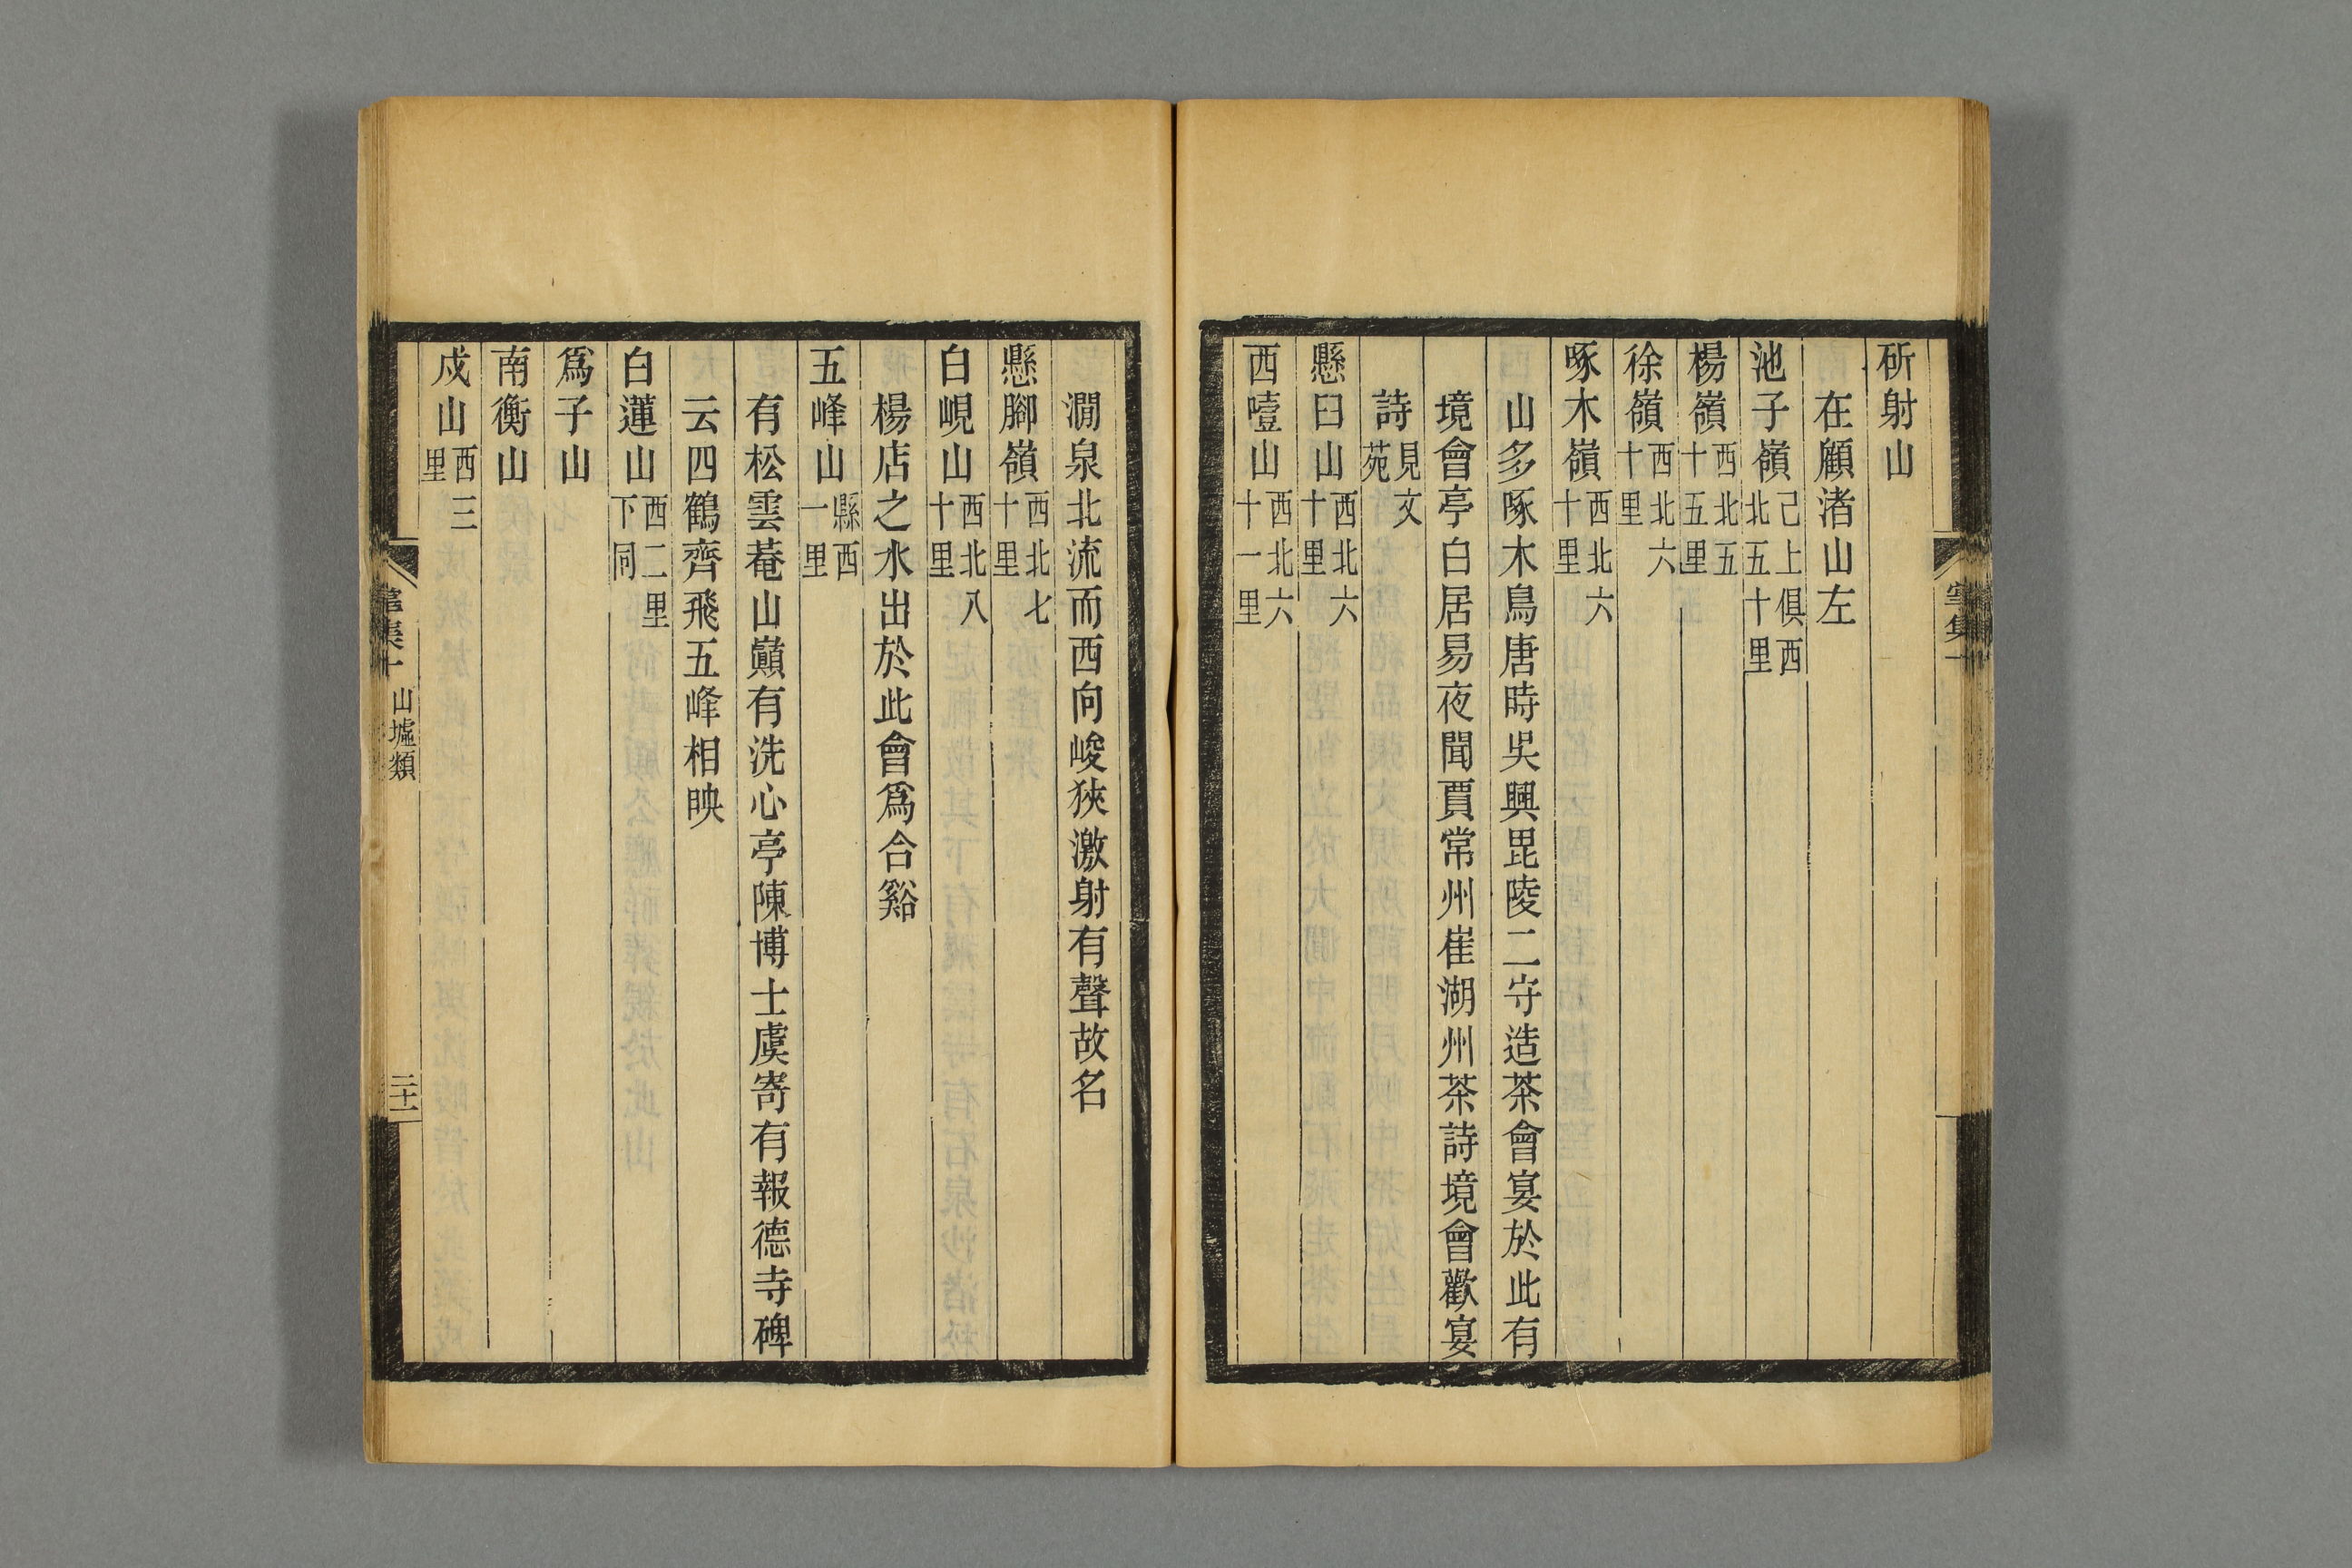 斫射山
在顧渚山左
池子嶺己上俱西北五十里
楊嶺西北五十五里
徐嶺西北六十里
啄木嶺西北六十里
山多啄木鳥唐時吳興毘陵二守造茶會宴於此有
境會亭白居易夜聞賈常州崔湖州茶詩境會歡宴
詩見文苑
懸臼山西北六十里
西噎山西北六十一里
澗泉北流而西向峻狹激射有聲故名
懸腳嶺西北七十里
白峴山西北八十里
楊店之水出於此會爲合谿
五峰山縣西一里
有松雲菴山巔有洗心亭陳博士虞寄有報德寺碑
云四鶴齊飛五峰相映
白蓮山西二里下同
爲子山
南衡山
戍山西三里
山墟類
二十一